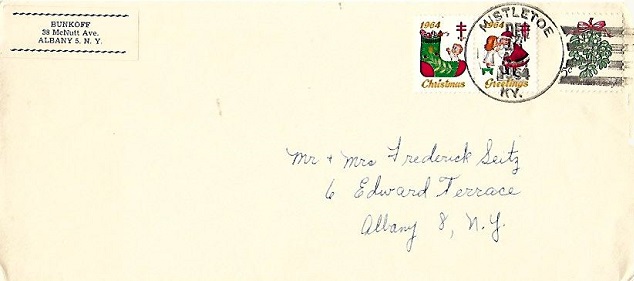 BUNKOFF
38 McNutt Ave.
ALBANY 5, N. Y.
1964
Christmas
1964
Greetings
MISTLETOE
DEC
1964
KY.
Mr + Mrs Frederick Seitz
6 Edward Terrace
Albany 8, N.Y.